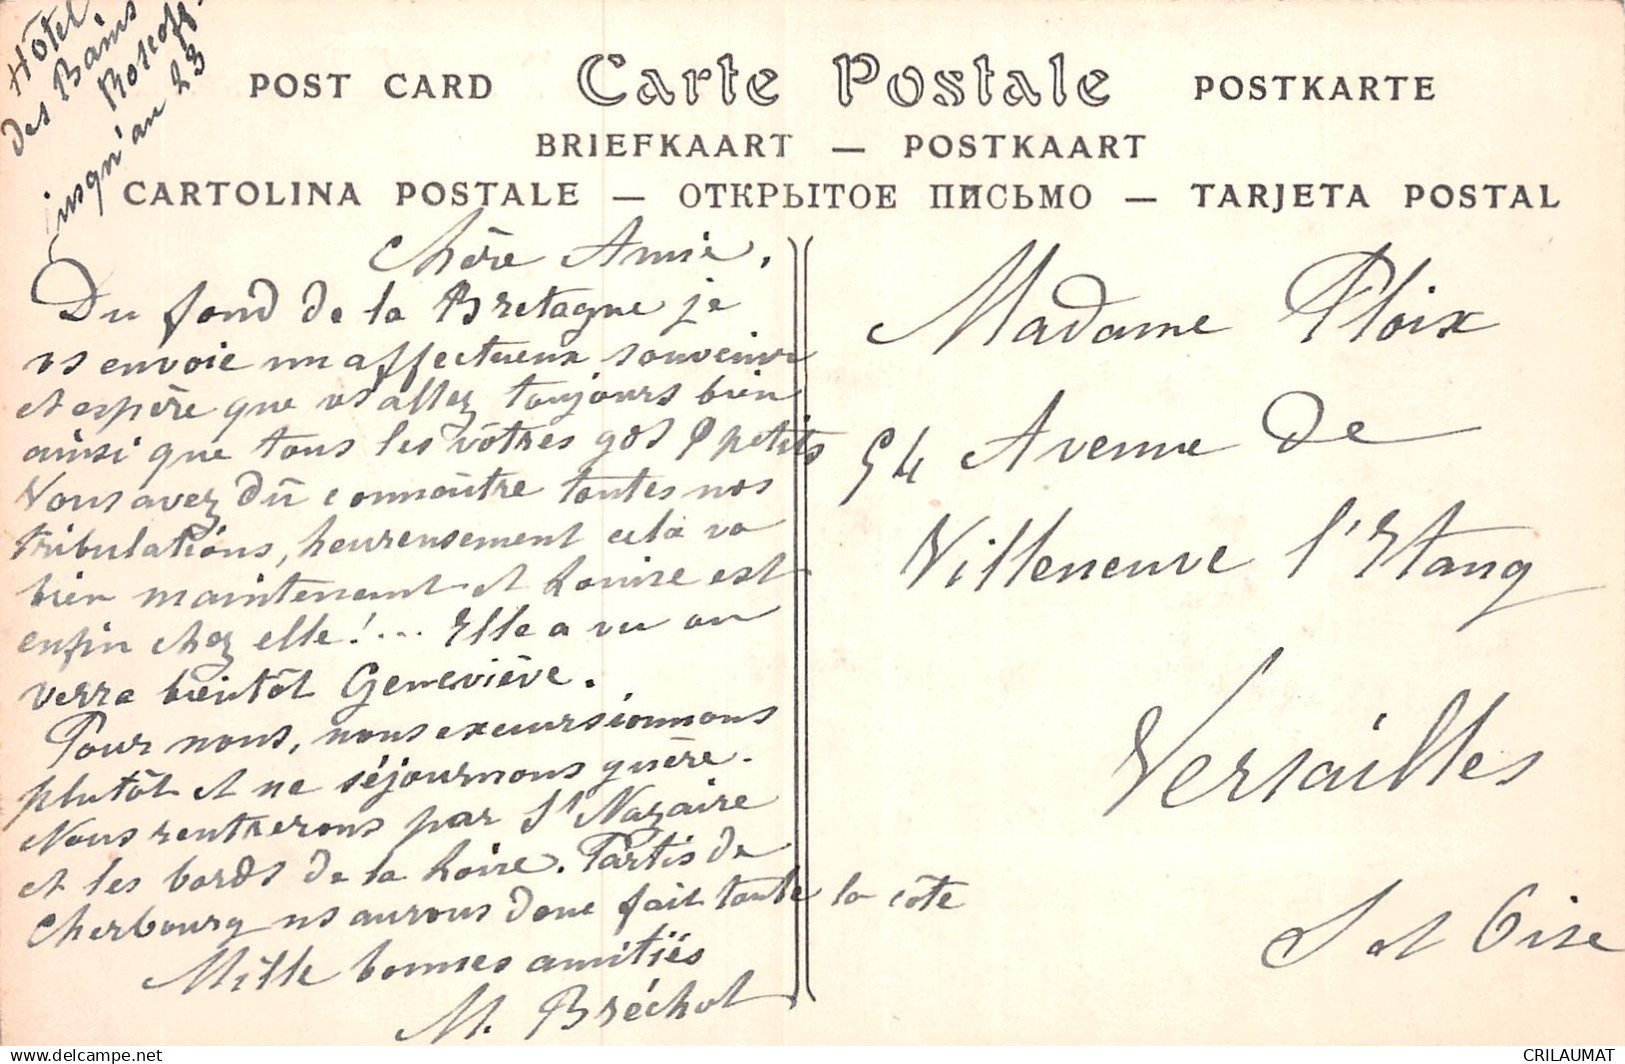 Hôtel
des Bains
Roscoff
jusqu'au 23
POST CARD Carte Postale POSTKARTE
BRIEFKAART — POSTKAART
CARTOLINA POSTALE — ОТКРЫТОЕ ПИСЬМО — TARJETA POSTAL
Chère Amie,
Du fond de la Bretagne je
vs envoie un affectueux souvenir
et espère que vs allez toujours bien
ainsi que tous les vôtres gds & petits
Vous avez dû connaître toutes nos
tribulations, heureusement cela va
bien maintenant et Louise est
enfin chez elle!... Elle a vu ou
verra bientôt Geneviève.
Pour nous, nous excursionnons
plutôt et ne séjournons guère.
Nous rentrerons par St Nazaire
et les bords de la Loire. Partis de
Cherbourg ns aurons donc fait toute la côte
Mille bonnes amitiés
M. Bréchot
Madame Ploix
54 Avenue de
Villeneuve l'Etang
Versailles
S et Oise
CRILAUMAT